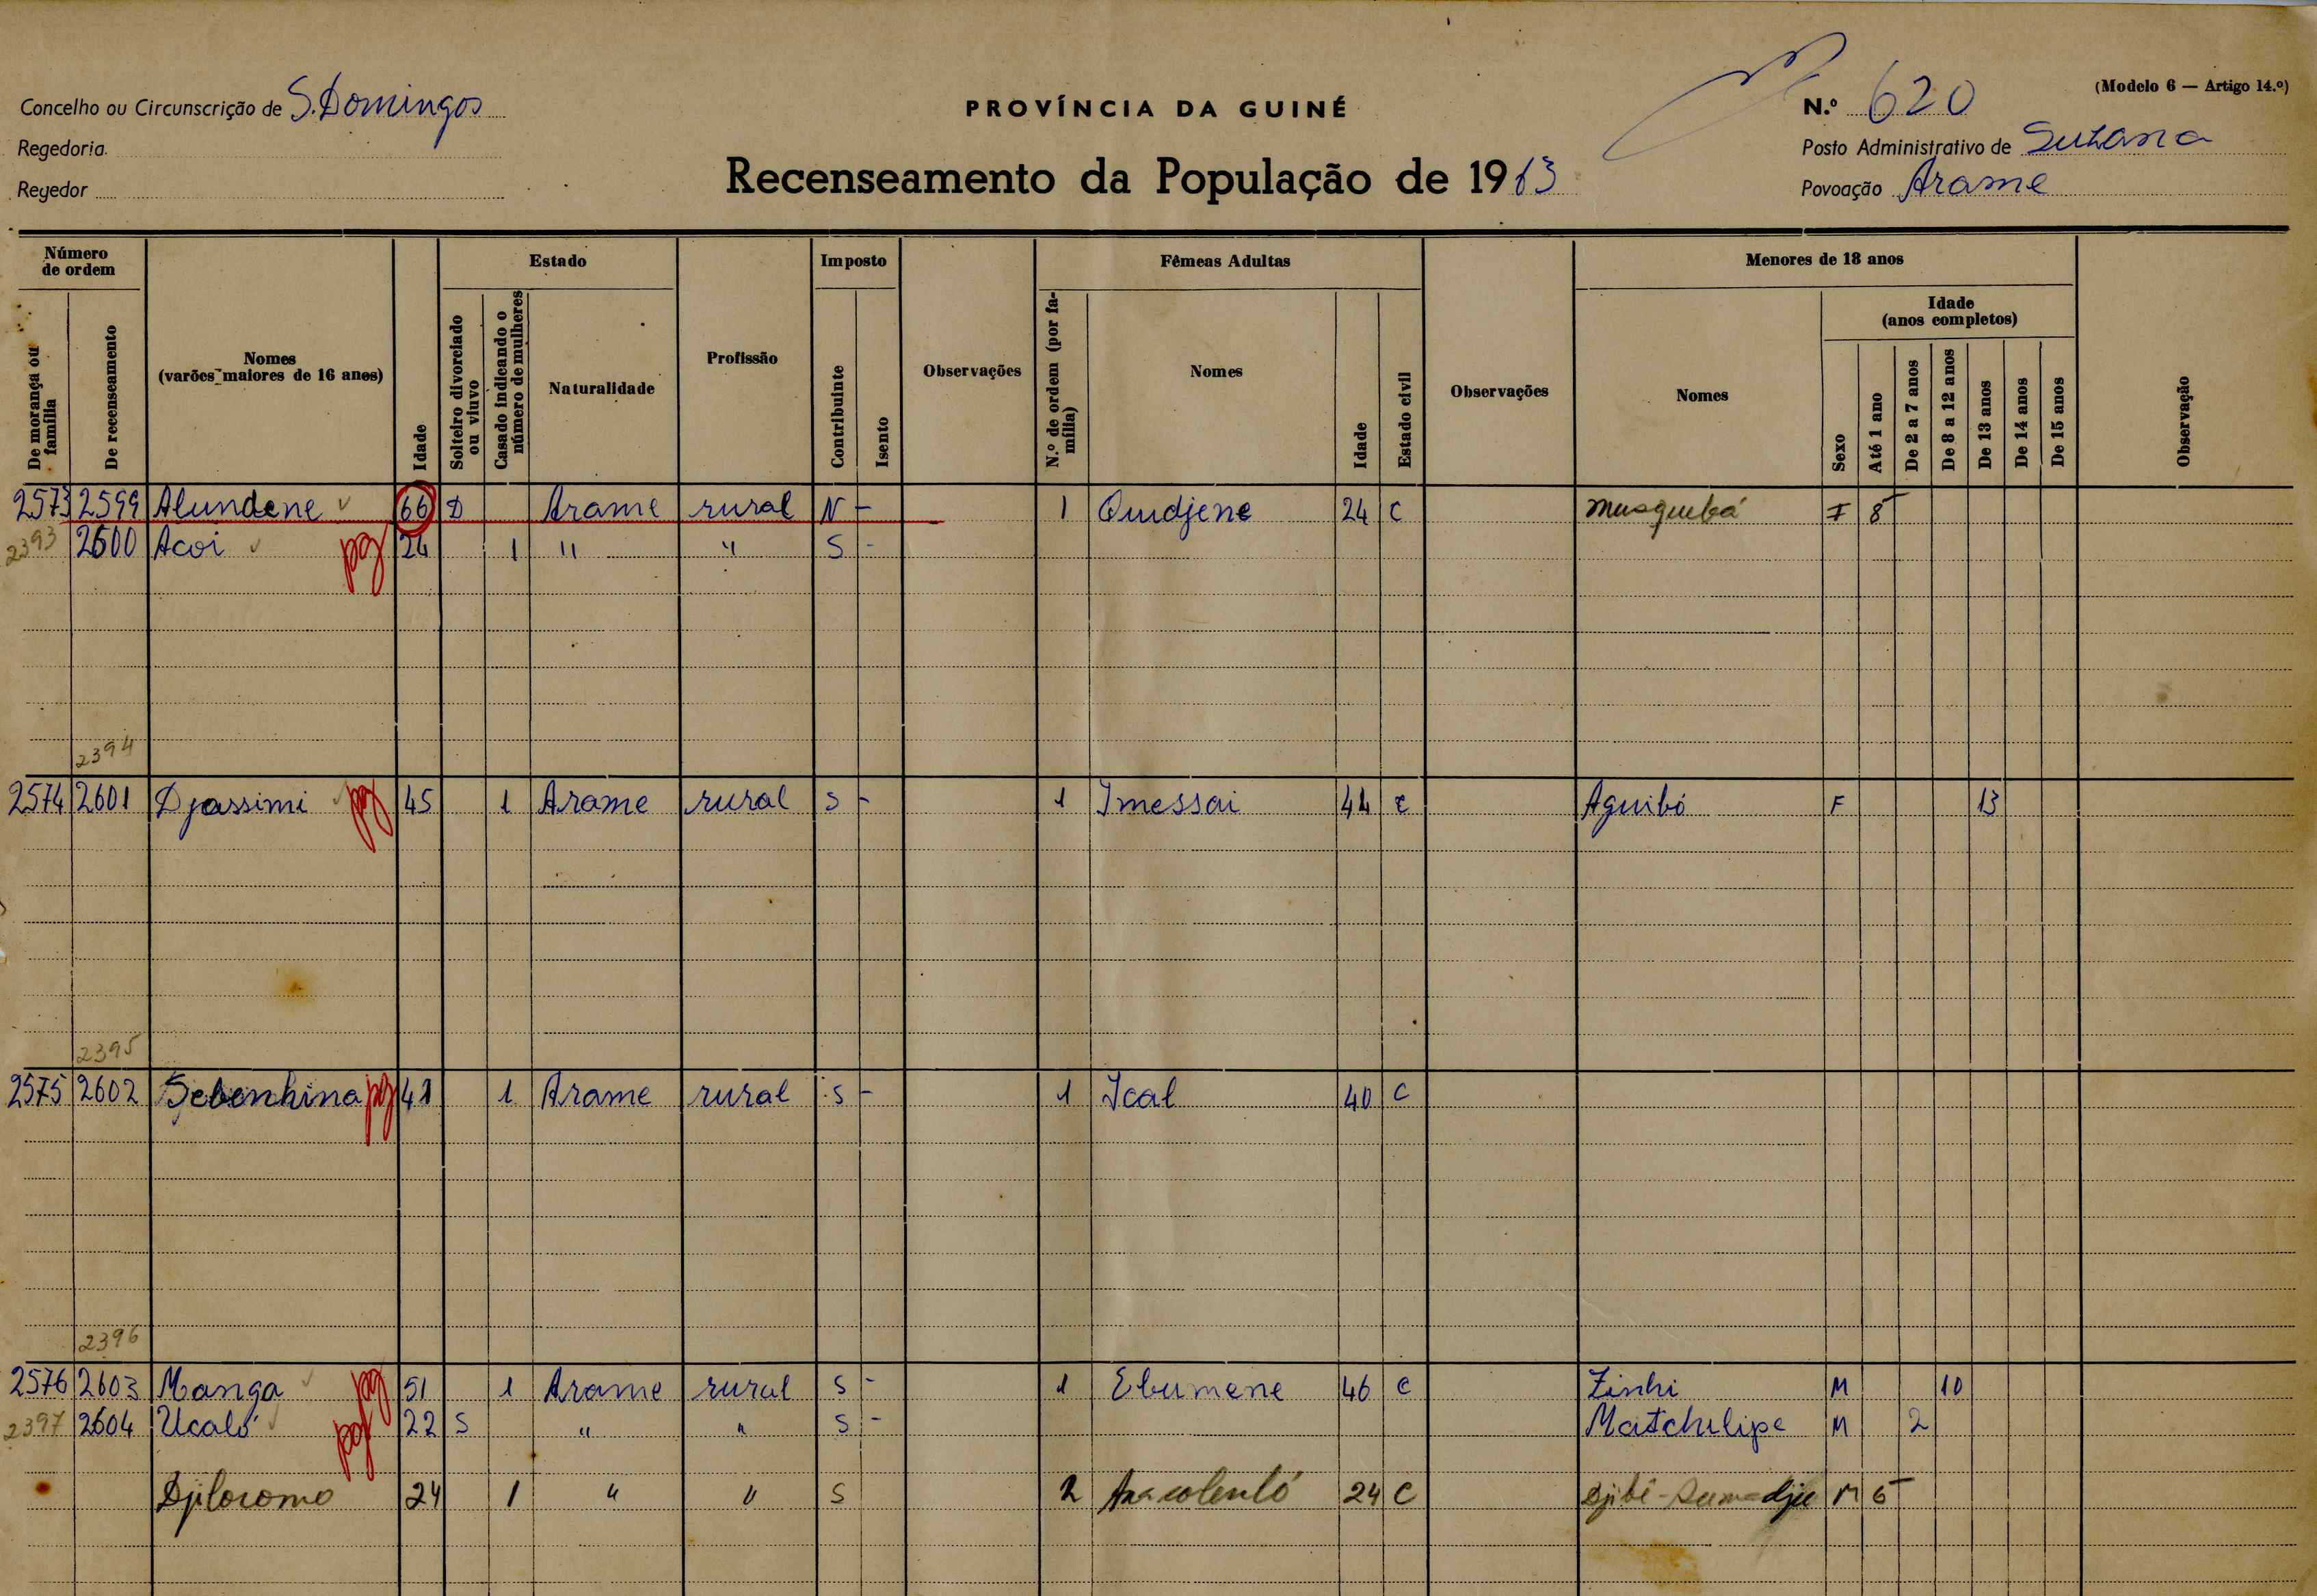 (Modelo 6 — Artigo 14.º)
Concelho ou Circunscrição de S. Domingos
PROVÍNCIA DA GUINÉ
N.º 620
Regedoria
Posto Administrativo de Suzana
Regedor
Recenseamento da População de 1963
Povoação Arame
Número de ordem
Estado
Imposto
Fêmeas Adultas
Menores de 18 anos
De morança ou família
De recenseamento
Nomes (varões maiores de 16 anos)
Idade
Solteiro divorciado ou viuvo
Casado indicando o número de mulheres
Naturalidade
Profissão
Contribuinte
Isento
Observações
N.º de ordem (por família)
Nomes
Idade
Estado civil
Observações
Nomes
Sexo
Idade (anos completos)
Até 1 ano
De 2 a 7 anos
De 8 a 12 anos
De 13 anos
De 14 anos
De 15 anos
Observação
2573 2599 Alundene 66 D Arame rural N - 1 Quidjene 24 C Musquebá F 8
2393 2600 Acoi pg 24 1 " " S -
2394
2574 2601 Djassimi pg 45 1 Arame rural S - 1 Imessai 44 C Aguibó F 13
2395
2575 2602 Sebenhina pg 41 1 Arame rural S - 1 Ical 40 C
2396
2576 2603 Manga pg 51 1 Arame rural S - 1 Ebumene 46 C Zinhi M 10
2397 2604 Ucaló pg 22 S " " S - Matchilipe M 2
Djiloromo 24 1 " " S 2 24 C M